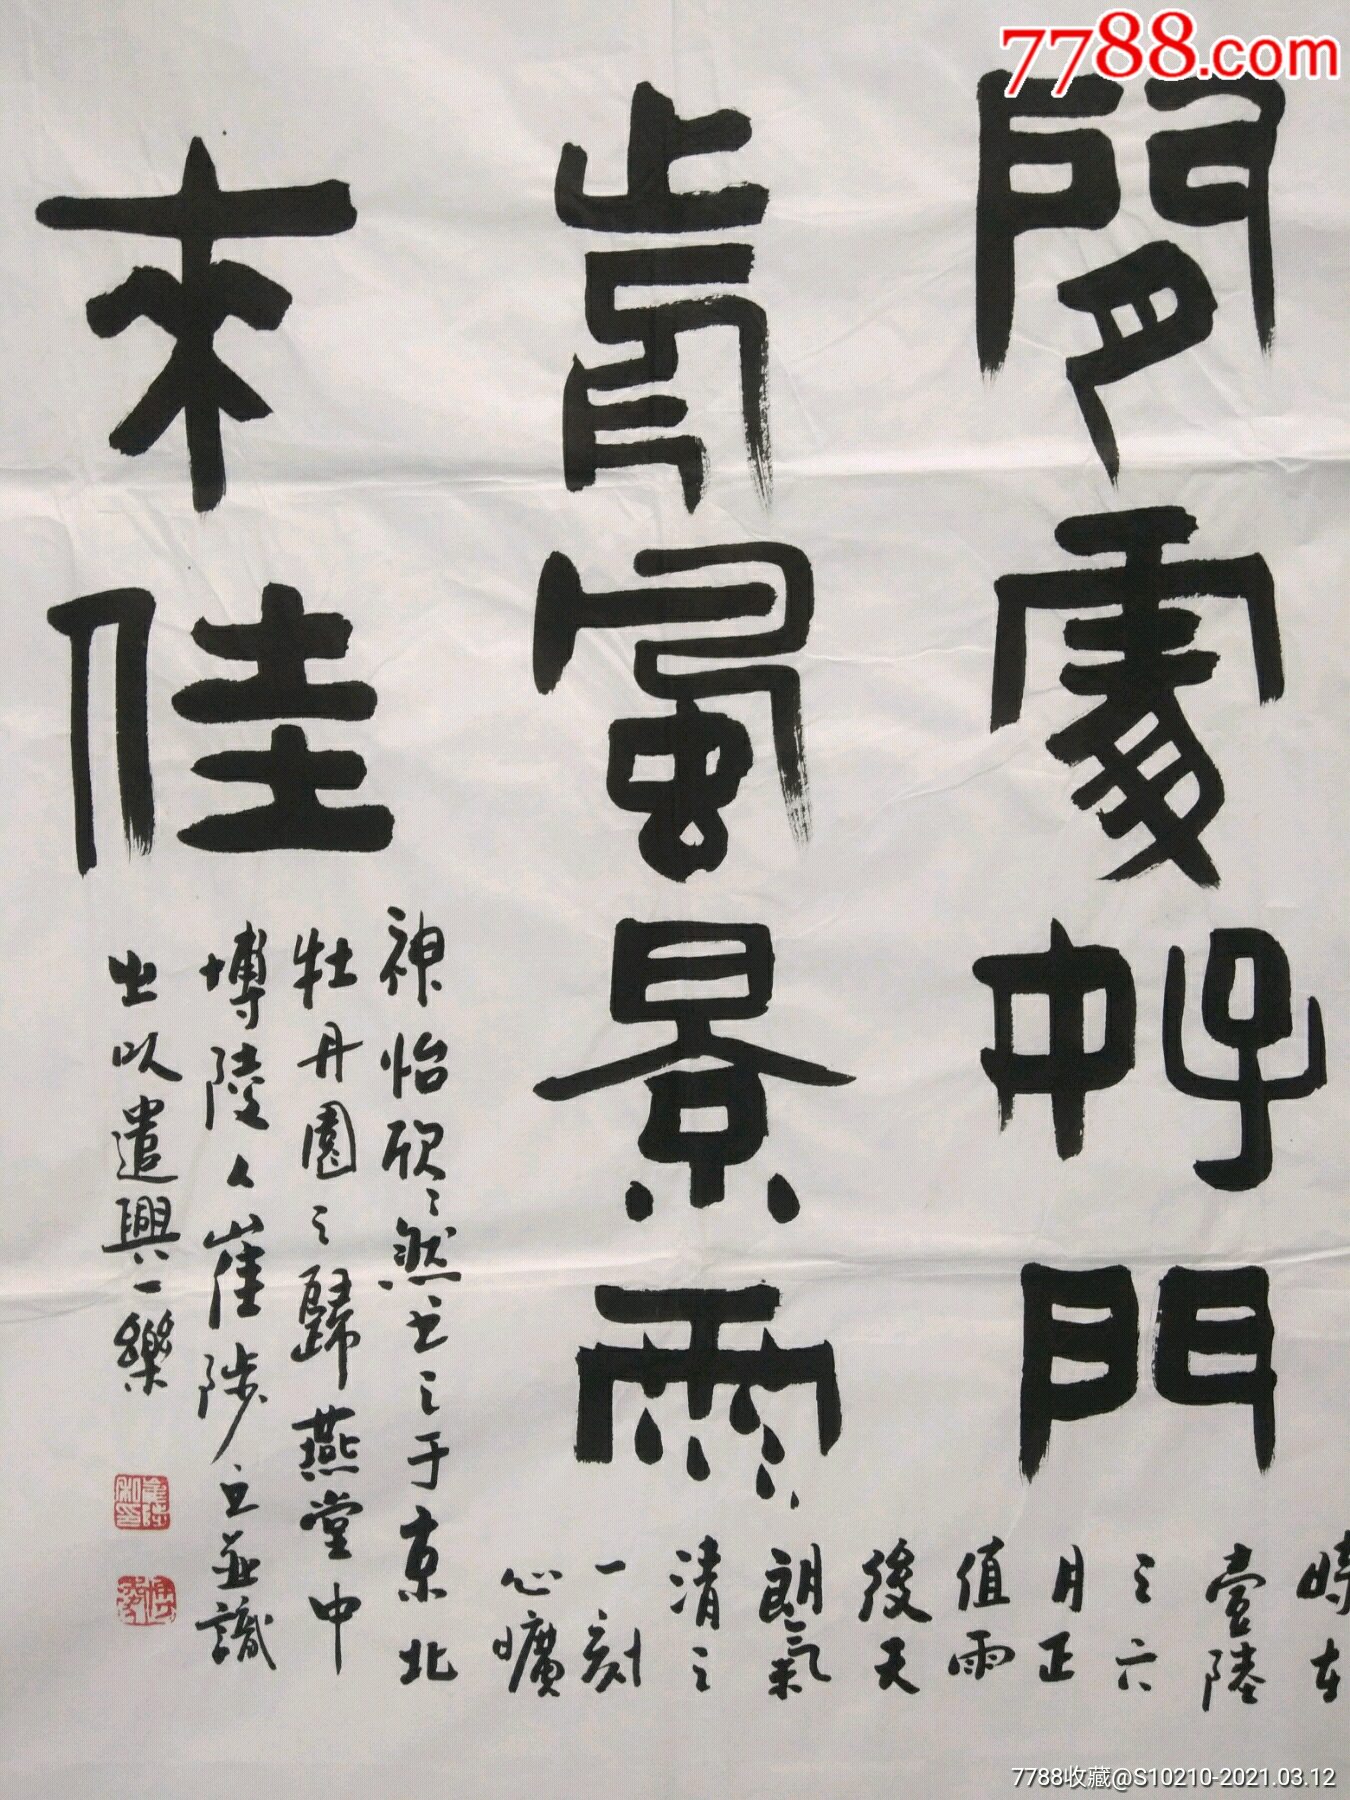 7788.com
閒處好門
前風景雨
來佳
時在
壹陸
之六
月正
值雨
後天
朗氣
清之
一刻
心曠
神怡欣欣然书之于京北
牡丹園之歸燕堂中
博陵人崔陟书並識
之以遣興一樂
7788收藏@S10210-2021.03.12